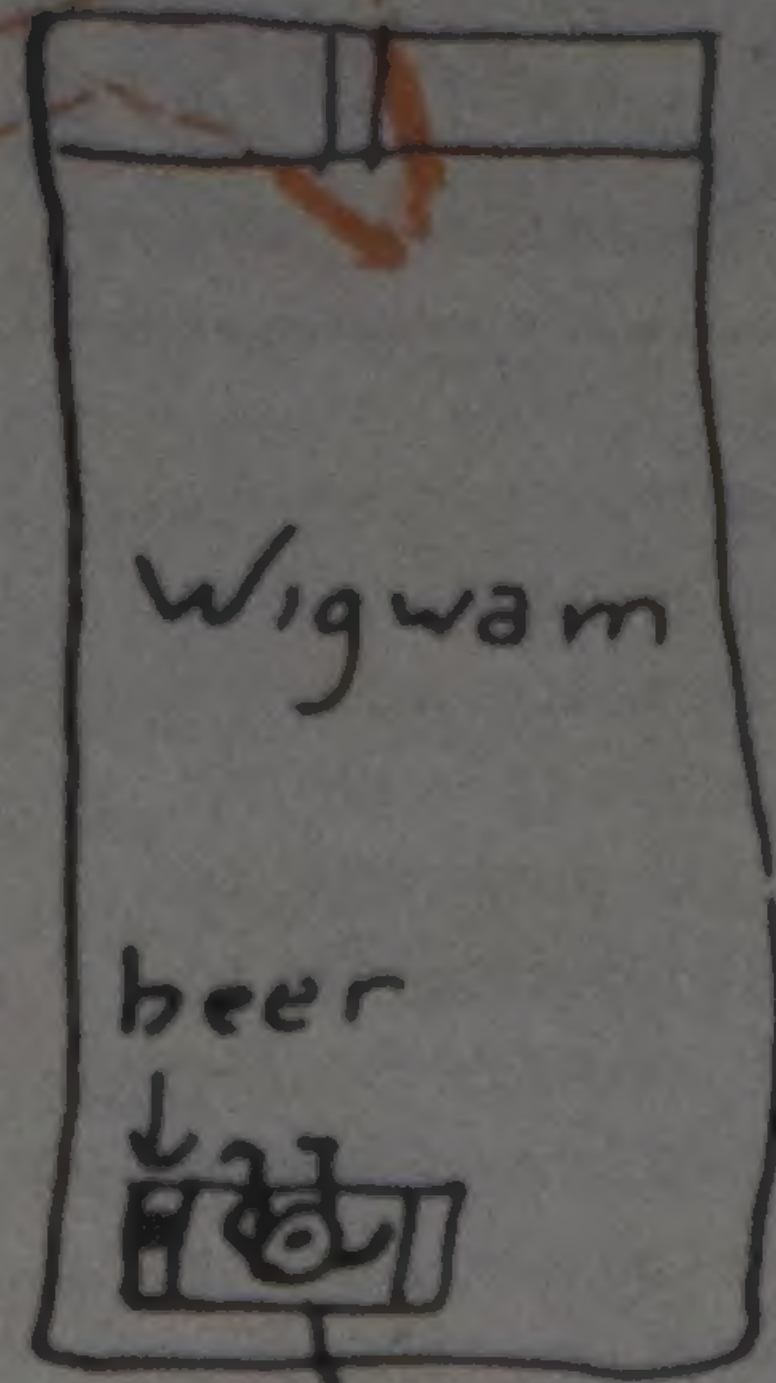 Wigwam
beer